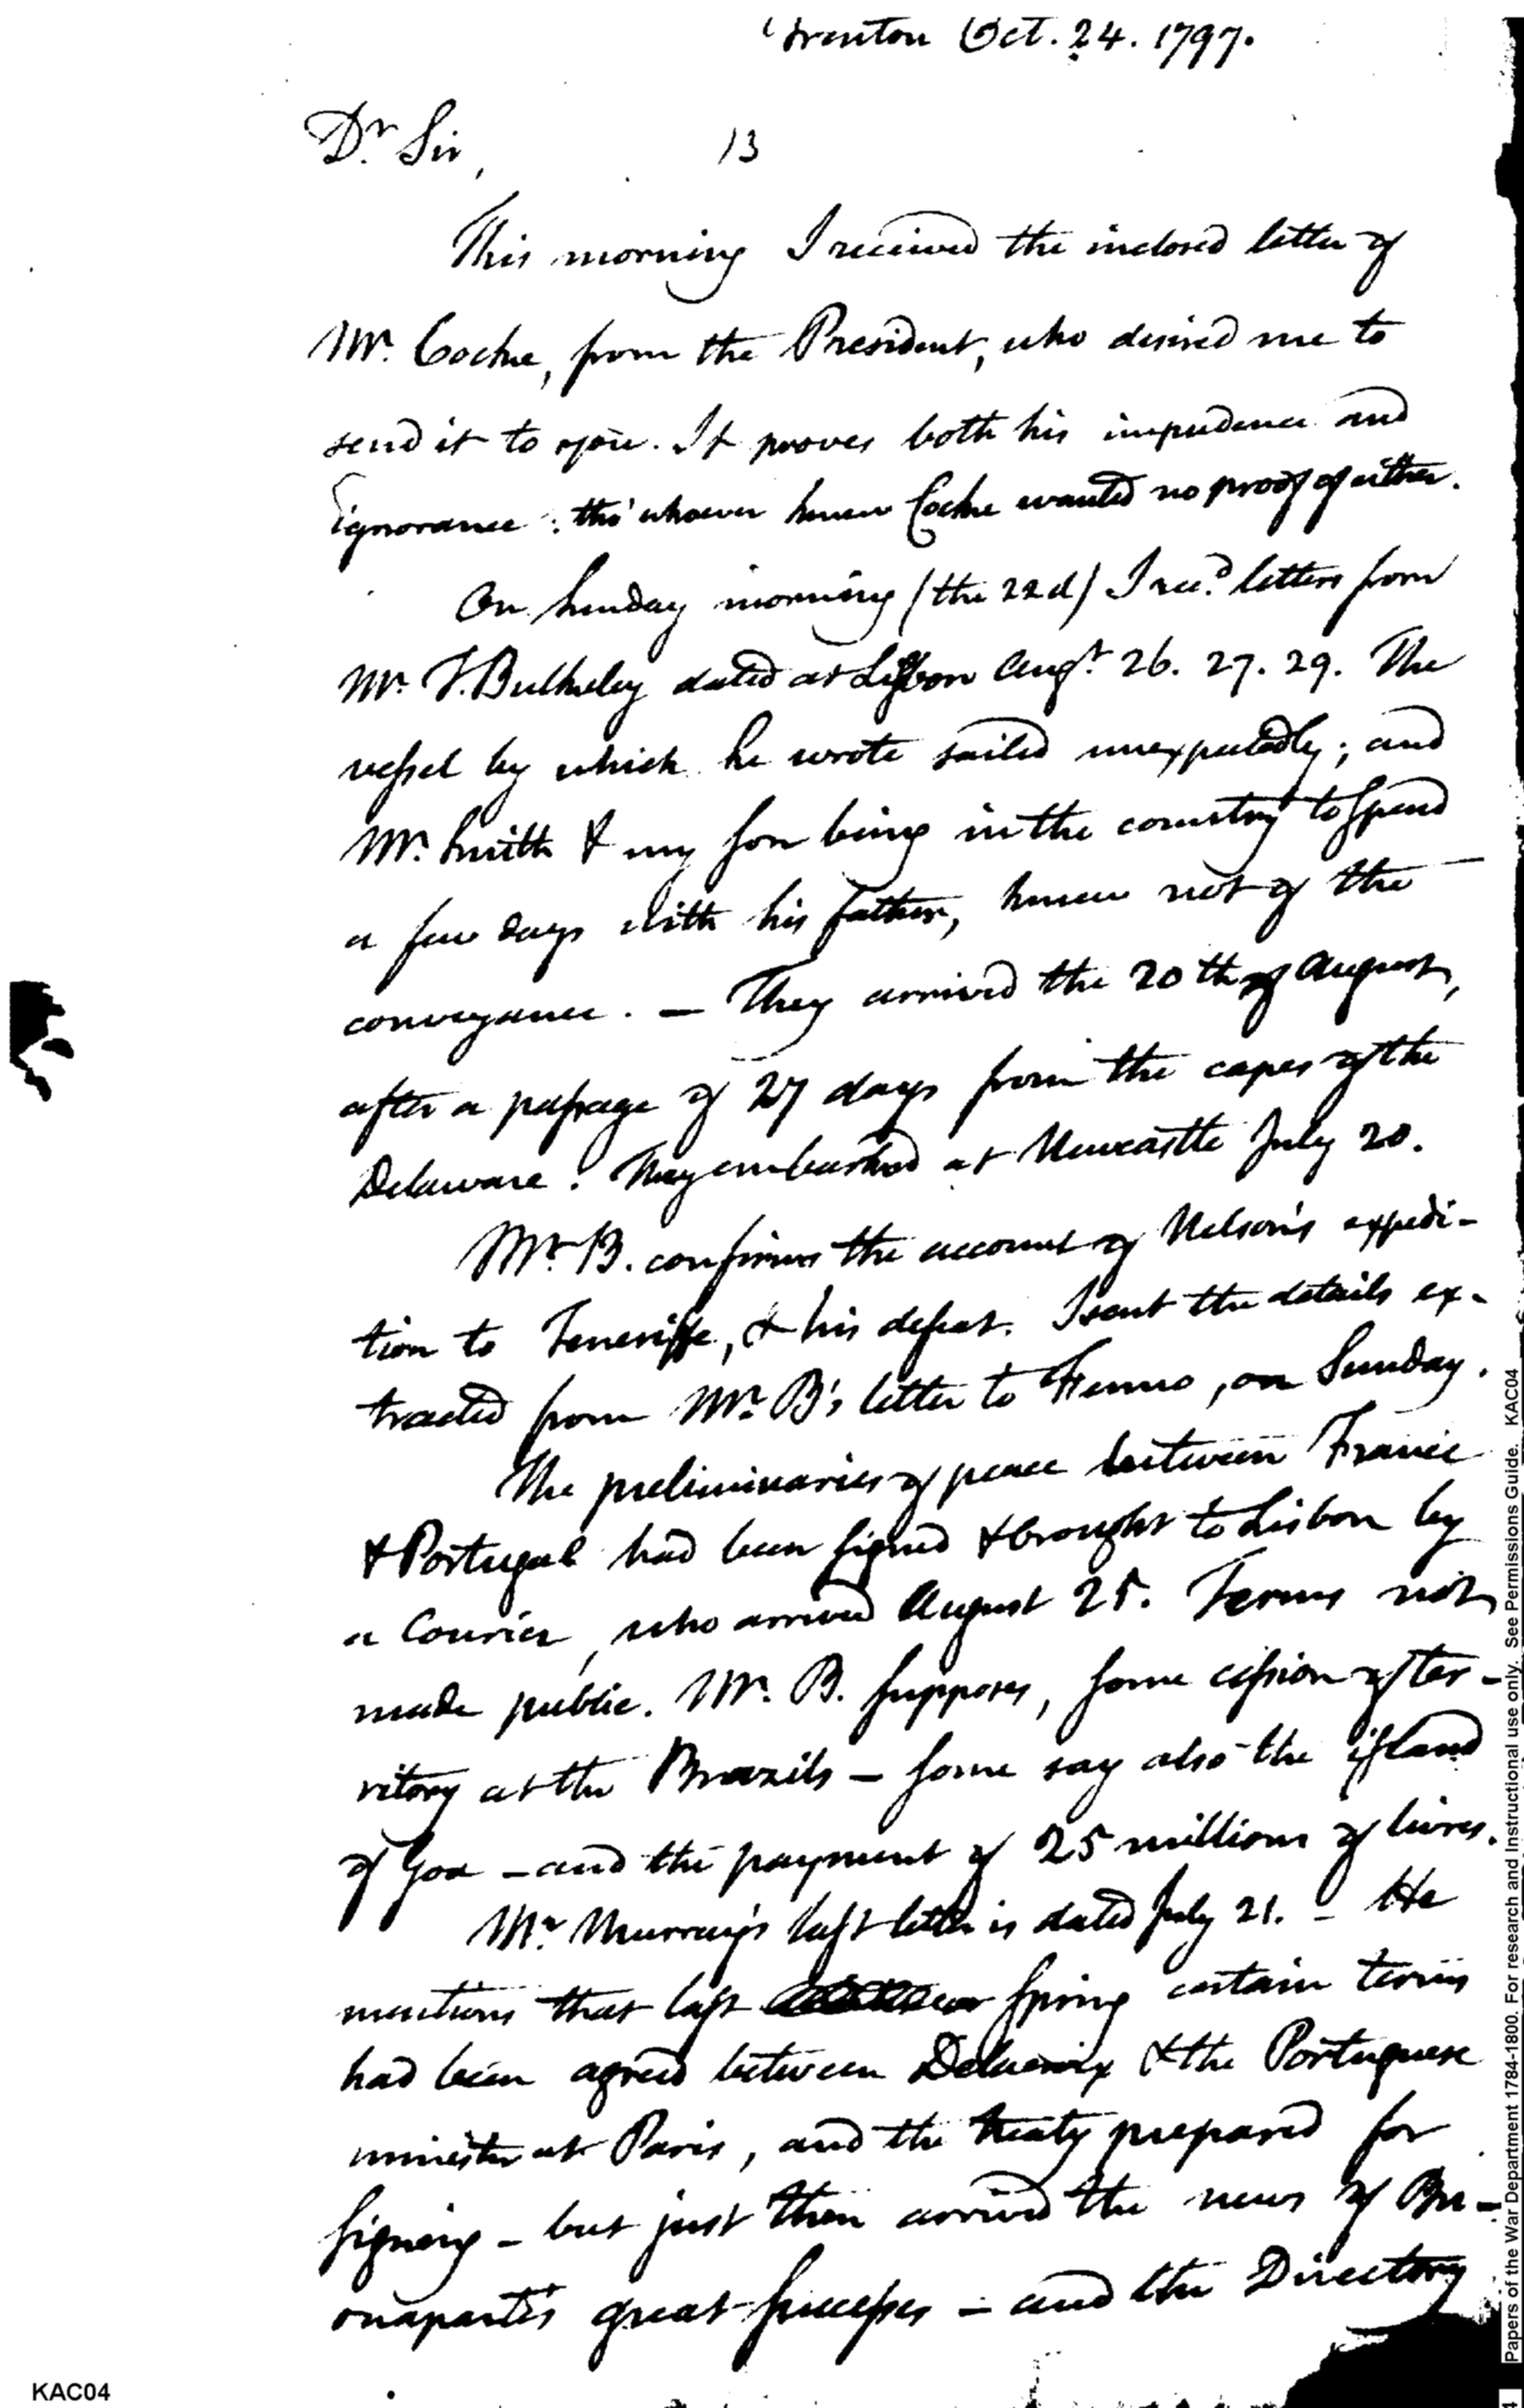 Trenton Oct. 24. 1797.
Dr. Sir,
13
This morning I received the inclosed letter of
Mr. Cocke, from the President, who desired me to
send it to you. It proves both his impudence and
ignorance: tho' whoever knew Cocke wanted no proof of either.
On Sunday morning (the 22d) I recd. letters from
Mr. T. Bulkeley dated at Lisbon Augt. 26. 27. 29. The
vessel by which he wrote sailed unexpectedly; and
Mr. Smith & my son being in the country to spend
a few days with his father, knew not of the
conveyance. — They arrived the 20th of August,
after a passage of 27 days from the capes of the
Delaware. They embarked at Newcastle July 20.
Mr. B. confirms the account of Nelson's expedi-
tion to Teneriffe, & his defeat. I sent the details ex-
tracted from Mr. B's letter to Fenno, on Sunday.
The preliminaries of peace between France
& Portugal had been signed & brought to Lisbon by
a Courier, who arrived August 25. Terms not
made public. Mr. B. supposes, some cession of ter-
ritory at the Brazils — some say also the island
of Goa — and the payment of 25 millions of livres.
Mr. Murray's last letter is dated July 21. — He
mentions that last spring certain terms
had been agreed between Delacroix & the Portuguese
minister at Paris, and the treaty prepared for
signing — but just then arrived the news of Bu-
onaparte's great successes — and the Directory
Papers of the War Department 1784-1800. For research and Instructional use only. See Permissions Guide. KAC04
KAC04